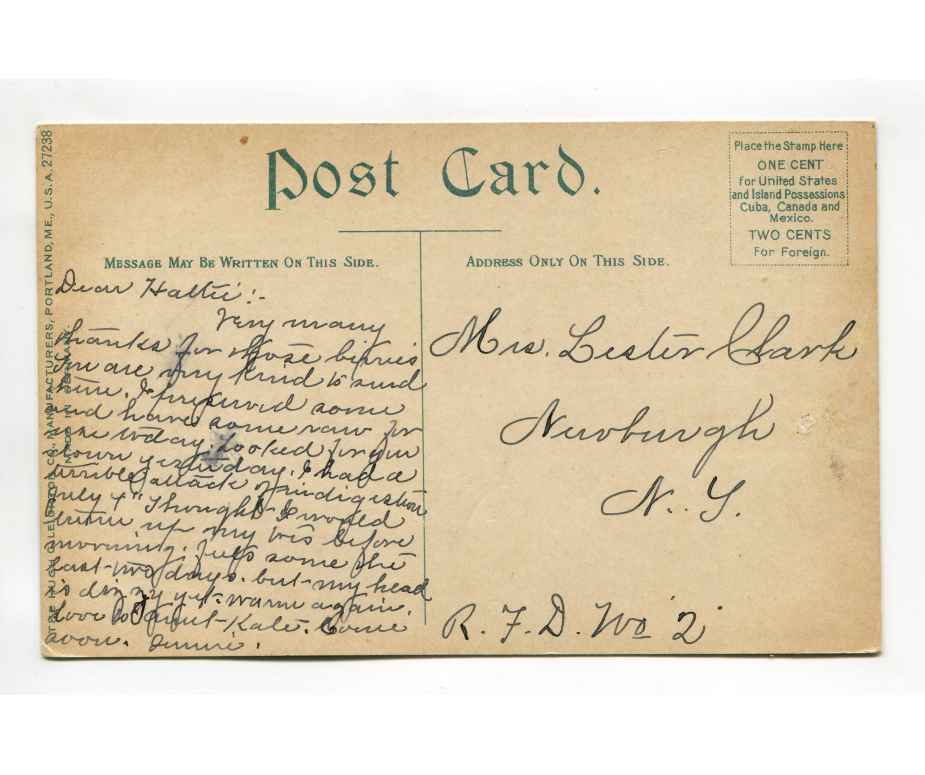 Post Card.
Place the Stamp Here
ONE CENT
for United States
and Island Possessions
Cuba, Canada and
Mexico.
TWO CENTS
For Foreign.
MESSAGE MAY BE WRITTEN ON THIS SIDE.
ADDRESS ONLY ON THIS SIDE.
THE HUGH C. LEIGHTON CO., MANUFACTURERS, PORTLAND, ME., U.S.A. 27238
MADE IN GERMANY.
Dear Hattie:-
Very many
thanks for those berries
you are very kind to send
them. I preserved some
and have some raw for
use today. Looked for you
down yesterday. I had a
terrible attack of indigestion
July 4" Thought I would
turn up my toes before
morning.
some the
last two days. but my head
is dizzy yet. warm again.
Love to Aunt Kate. Come
soon.
Mrs. Lester Clark
Newburgh
N. Y.
R. F. D. No 2